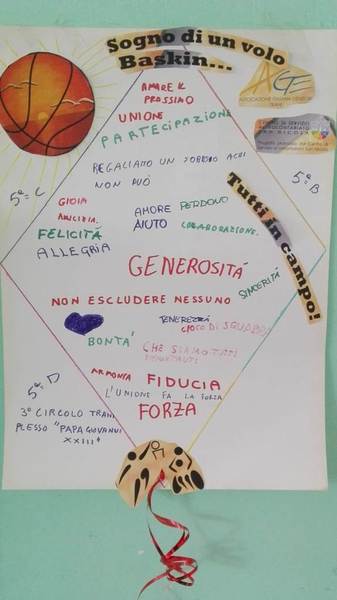 Sogno di un volo
Baskin...
AGE
ASSOCIAZIONE ITALIANA GENITORI
TRANI
AMARE IL
PROSSIMO
UNIONE
PARTECIPAZIONE
SAN NICOLA
REGALIAMO UN SORRISO A CHI
NON PUÒ
5ª C
5ª B
Tutti in campo!
GIOIA
AMICIZIA.
FELICITÀ
ALLEGRIA
AMORE PERDONO
AIUTO COLLABORAZIONE.
GENEROSITÁ
SINCERITÁ
NON ESCLUDERE NESSUNO
TENEREZZA
GIOCO DI SGUARDI
BONTA'
CHE SIAMO TUTTI
IMPORTANTI
ARMONIA
FIDUCIA
L'UNIONE FA LA FORZA
FORZA
5ª D
3° CIRCOLO TRANI
PLESSO "PAPA GIOVANNI
XXIII"